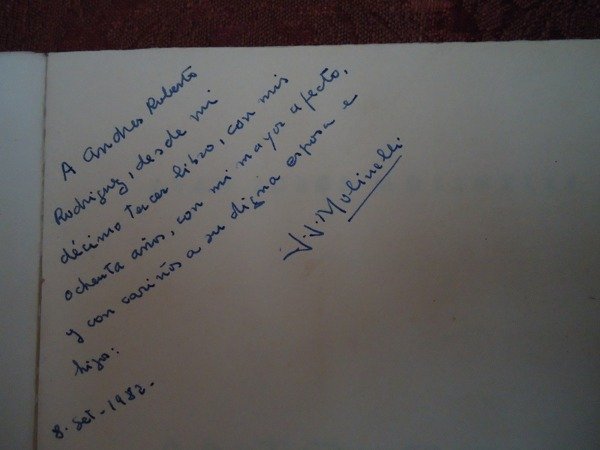 A Andres Roberto
Rodriguez, desde mi
décimo tercer libro, con mis
ochenta años, con mi mayor afecto,
y con cariños a su digna esposa e
hijos:
J.J. Molinelli
8. Set - 1982.